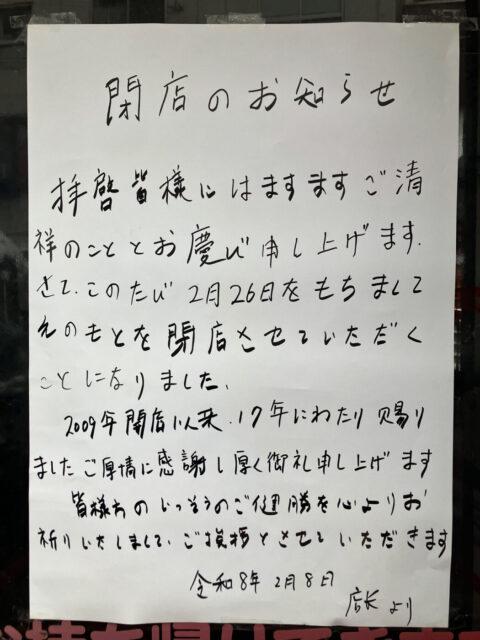 閉店のお知らせ
拝啓皆様にはますますご清
祥のこととお慶び申し上げます.
さて、このたび2月26日をもちまして
えのもとを閉店させていただく
ことになりました.
2009年開店以来、17年にわたり賜り
ましたご厚情に感謝し厚く御礼申し上げます
皆様方のいっそうのご健勝を心よりお
祈りいたしまして、ご挨拶とさせていただきます
令和8年 2月8日
店長より